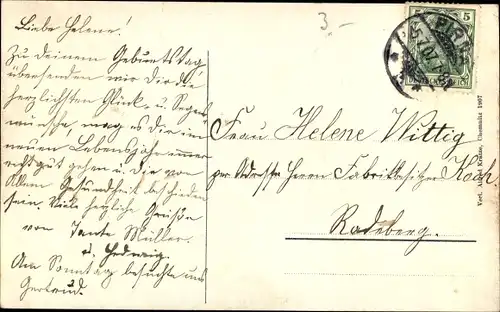 Liebe Helene!
Zu deinem Geburtstag
übersenden wir dir die
herzlichsten Glück- u. Segens
wünsche, mag es dir im
neuen Lebensjahr immer
recht gut gehen u. dir vor
Allem Gesundheit beschieden
sein. Viele herzliche Grüße
von Tante Müller.
u. Hedwig.
Am Sonntag besuchte uns
Gertrud.
3.-
5 5
Frau Helene Wittig
per Adresse Herrn Fabrikbesitzer Koch
Radeberg.
Chemnitz 1907